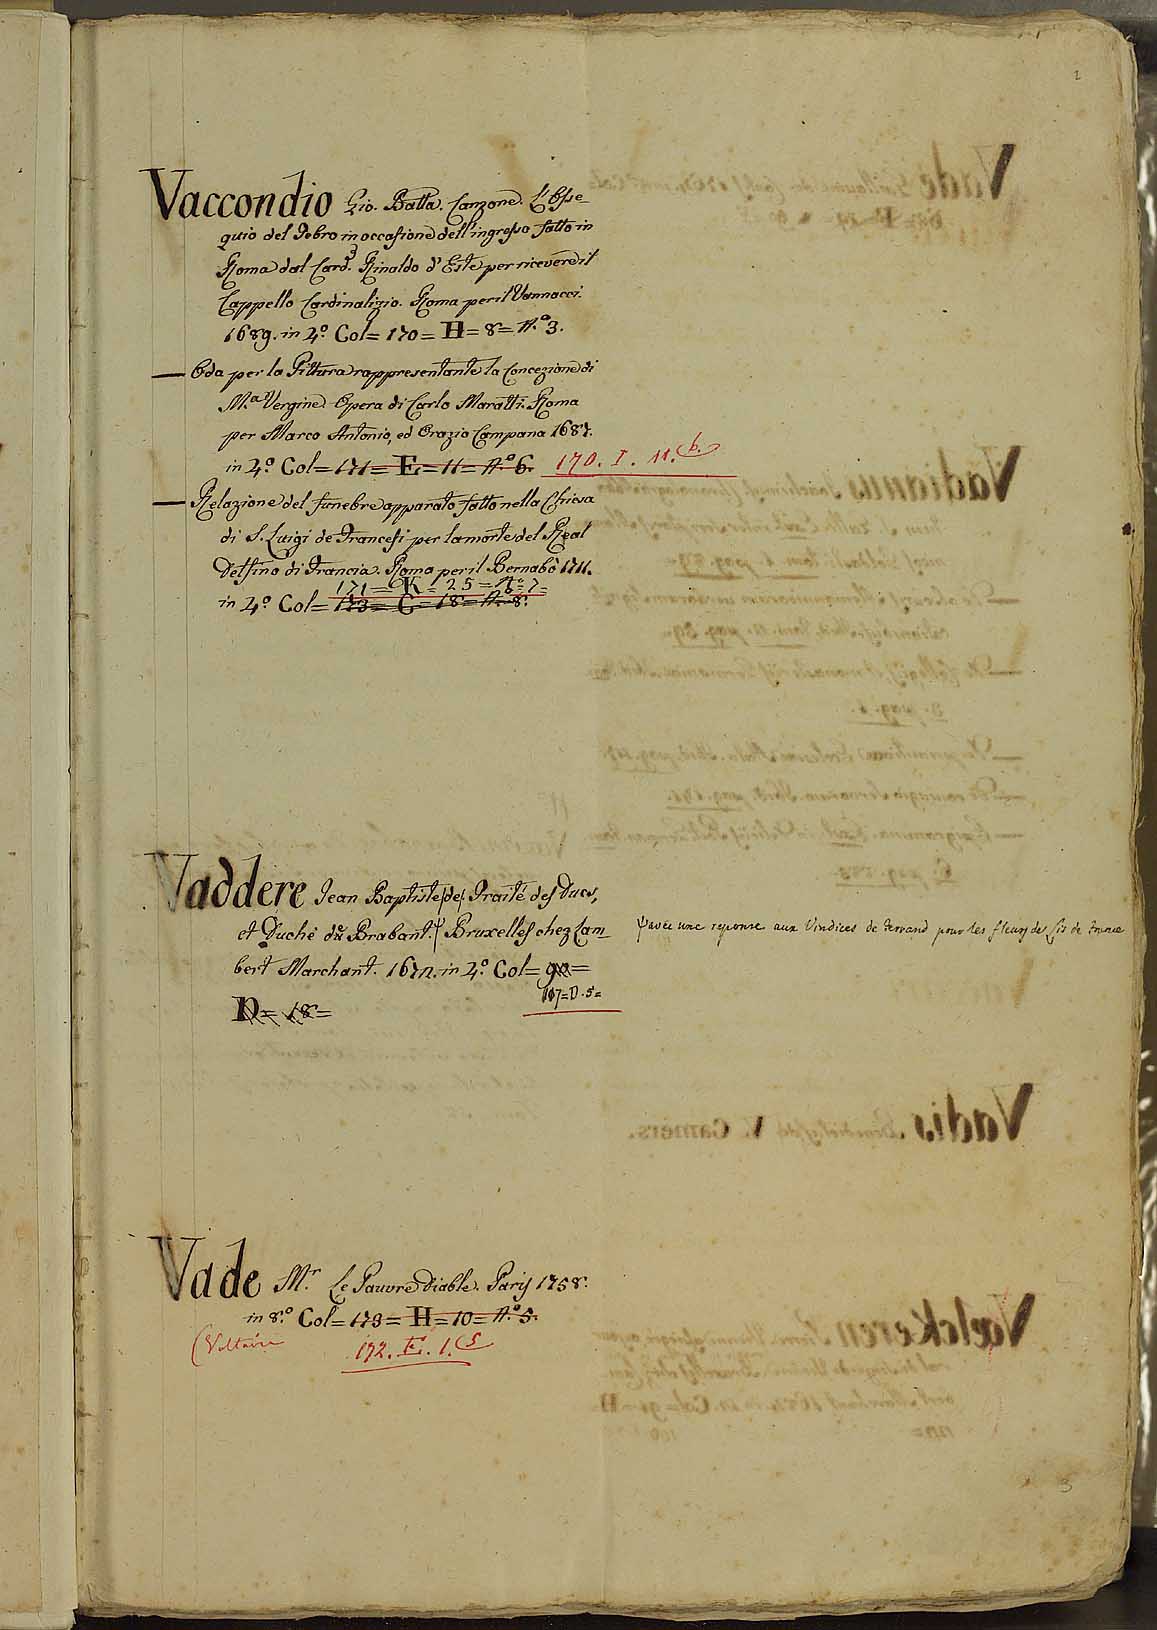 Vaccondio Gio. Batta. Canzone. L'Osse-
quio del Tebro in occasione dell'ingresso fatto in
Roma dal Card. Rinaldo d'Este per ricevere il
Cappello Cardinalizio. Roma per il Vannacci.
1689. in 4.º Col= 170= H= 8= N.º 3.
— Oda per la Pittura rappresentante la Concezione di
M.a Vergine. Opera di Carlo Maratti. Roma
per Marco Antonio, ed Orazio Campana 1687.
in 4.º Col= 171= E= 11= N.º 6. 170. I. 11. (b.
— Relazione del funebre apparato fatto nella Chiesa
di S. Luigi de Francesi per la morte del Real
Delfino di Francia. Roma per il Bernabò 1711.
171= K= 25= N.º 7=
in 4.º Col= 173= C= 18= N. 8.
Vaddere Jean Baptiste /de/. Traité des Ducs,
et Duché du Brabant. Ψ Bruxelles chez Lam-
Ψ avec une reponse aux Vindices de ferrand pour les fleurs de Lis de france
bert Marchant. 1672. in 4.º Col= 90=
107= D. 5=
D= 18=
Vade M.r Le Pauvre Diable. Paris 1758.
in 8.º Col= 173= H= 10= N.º 5.
(Voltaire 172. E. 1. (5
3